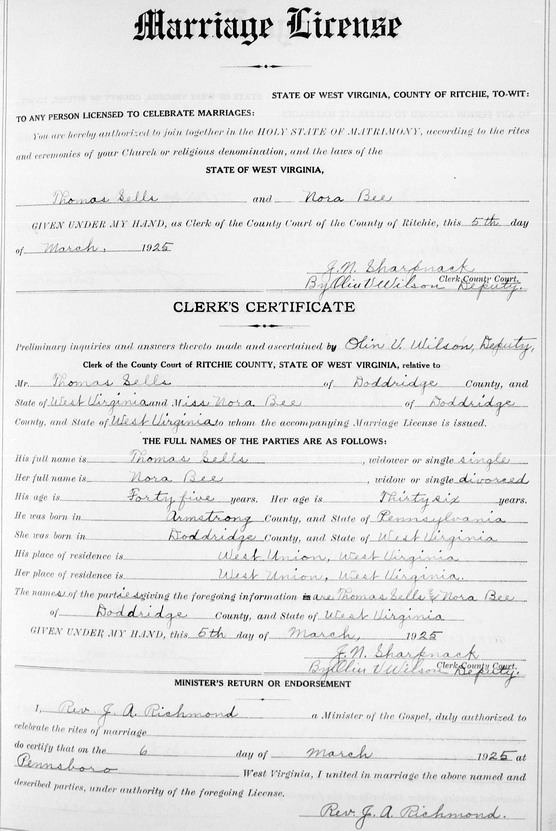 Marriage License
STATE OF WEST VIRGINIA, COUNTY OF RITCHIE, TO-WIT:
TO ANY PERSON LICENSED TO CELEBRATE MARRIAGES:
You are hereby authorized to join together in the HOLY STATE OF MATRIMONY, according to the rites
and ceremonies of your Church or religious denomination, and the laws of the
STATE OF WEST VIRGINIA,
Thomas Sells and Nora Bee
GIVEN UNDER MY HAND, as Clerk of the County Court of the County of Ritchie, this 5th day
of March, 1925
J. N. Sharpnack
Clerk County Court.
By Olin V Wilson Deputy.
CLERK'S CERTIFICATE
Preliminary inquiries and answers thereto made and ascertained by Olin V. Wilson, Deputy,
Clerk of the County Court of RITCHIE COUNTY, STATE OF WEST VIRGINIA, relative to
Mr. Thomas Sells of Doddridge County, and
State of West Virginia and Miss Nora Bee of Doddridge
County, and State of West Virginia to whom the accompanying Marriage License is issued.
THE FULL NAMES OF THE PARTIES ARE AS FOLLOWS:
His full name is Thomas Sells, widower or single single
Her full name is Nora Bee, widow or single divorced
His age is Forty five years. Her age is Thirty six years.
He was born in Armstrong County, and State of Pennsylvania
She was born in Doddridge County, and State of West Virginia
His place of residence is West Union, West Virginia
Her place of residence is West Union, West Virginia.
The names of the parties giving the foregoing information are Thomas Sells & Nora Bee
of Doddridge County, and State of West Virginia
GIVEN UNDER MY HAND, this 5th day of March, 1925
J. N. Sharpnack
Clerk County Court.
By Olin V Wilson Deputy.
MINISTER'S RETURN OR ENDORSEMENT
I, Rev. J. A. Richmond a Minister of the Gospel, duly authorized to
celebrate the rites of marriage
do certify that on the 6 day of March 1925 at
Pennsboro, West Virginia, I united in marriage the above named and
described parties, under authority of the foregoing License.
Rev. J. A. Richmond.